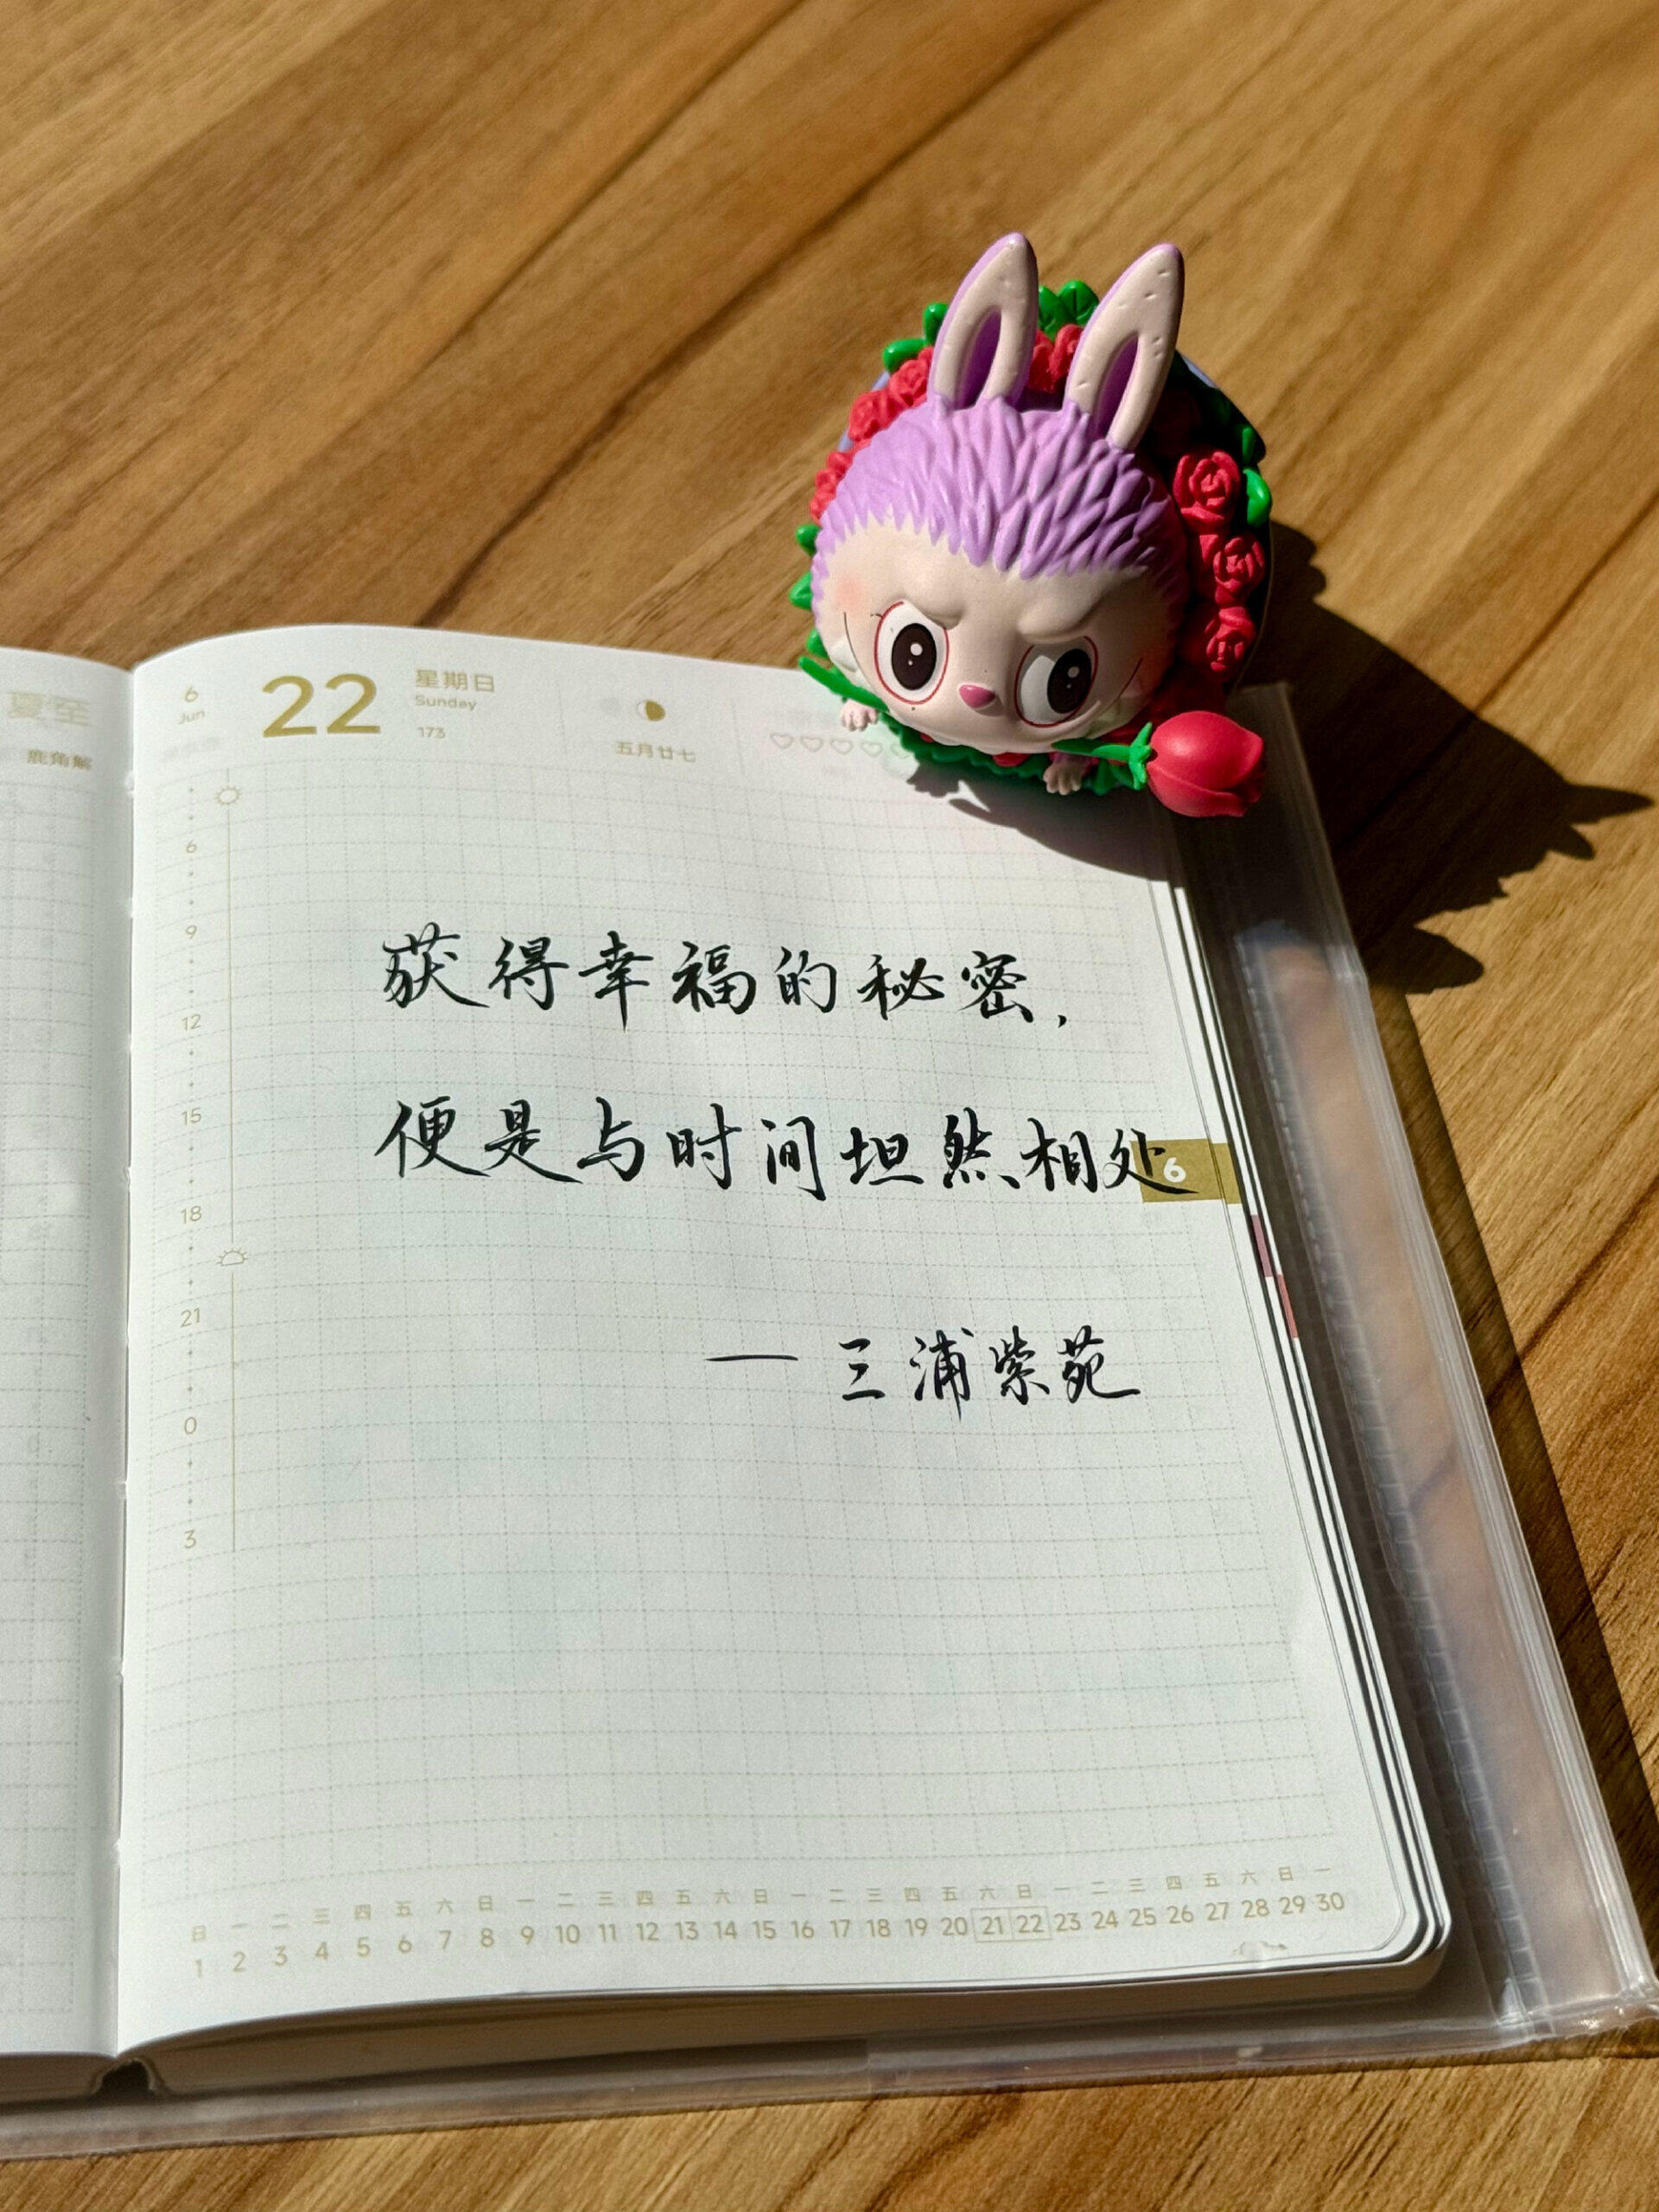 夏至
鹿角解
6
Jun
22
星期日
Sunday
173
五月廿七
6
9
12
15
18
21
0
3
获得幸福的秘密，
便是与时间坦然相处
6
— 三浦紫苑
日 一 二 三 四 五 六 日 一 二 三 四 五 六 日 一 二 三 四 五 六 日 一 二 三 四 五 六 日 一
1 2 3 4 5 6 7 8 9 10 11 12 13 14 15 16 17 18 19 20 21 22 23 24 25 26 27 28 29 30